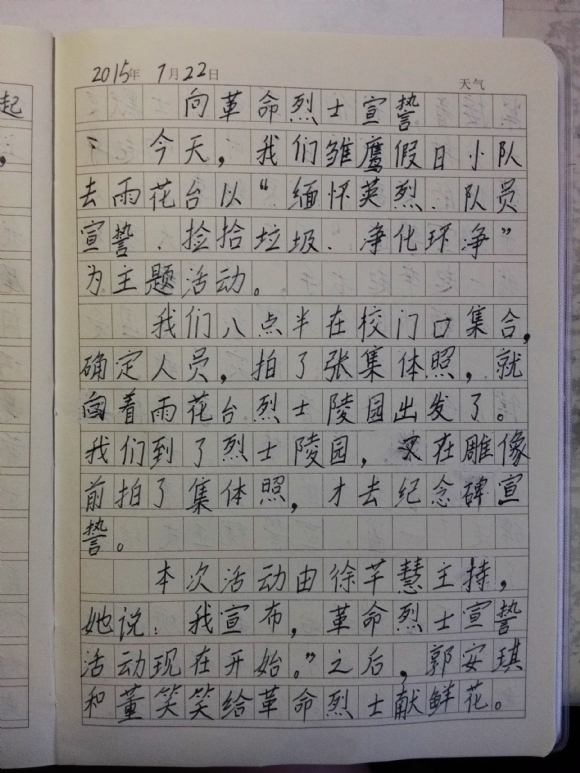 2015年 7月22日 天气
向革命烈士宣誓
今天，我们雏鹰假日小队
去雨花台以“缅怀英烈、队员
宣誓、捡拾垃圾、净化环净”
为主题活动。
我们八点半在校门口集合，
确定人员，拍了张集体照，就
向着雨花台烈士陵园出发了。
我们到了烈士陵园，又在雕像
前拍了集体照，才去纪念碑宣
誓。
本次活动由徐芊慧主持，
她说：我宣布，革命烈士宣誓
活动现在开始。”之后，郭安琪
和董笑笑给革命烈士献鲜花。
起